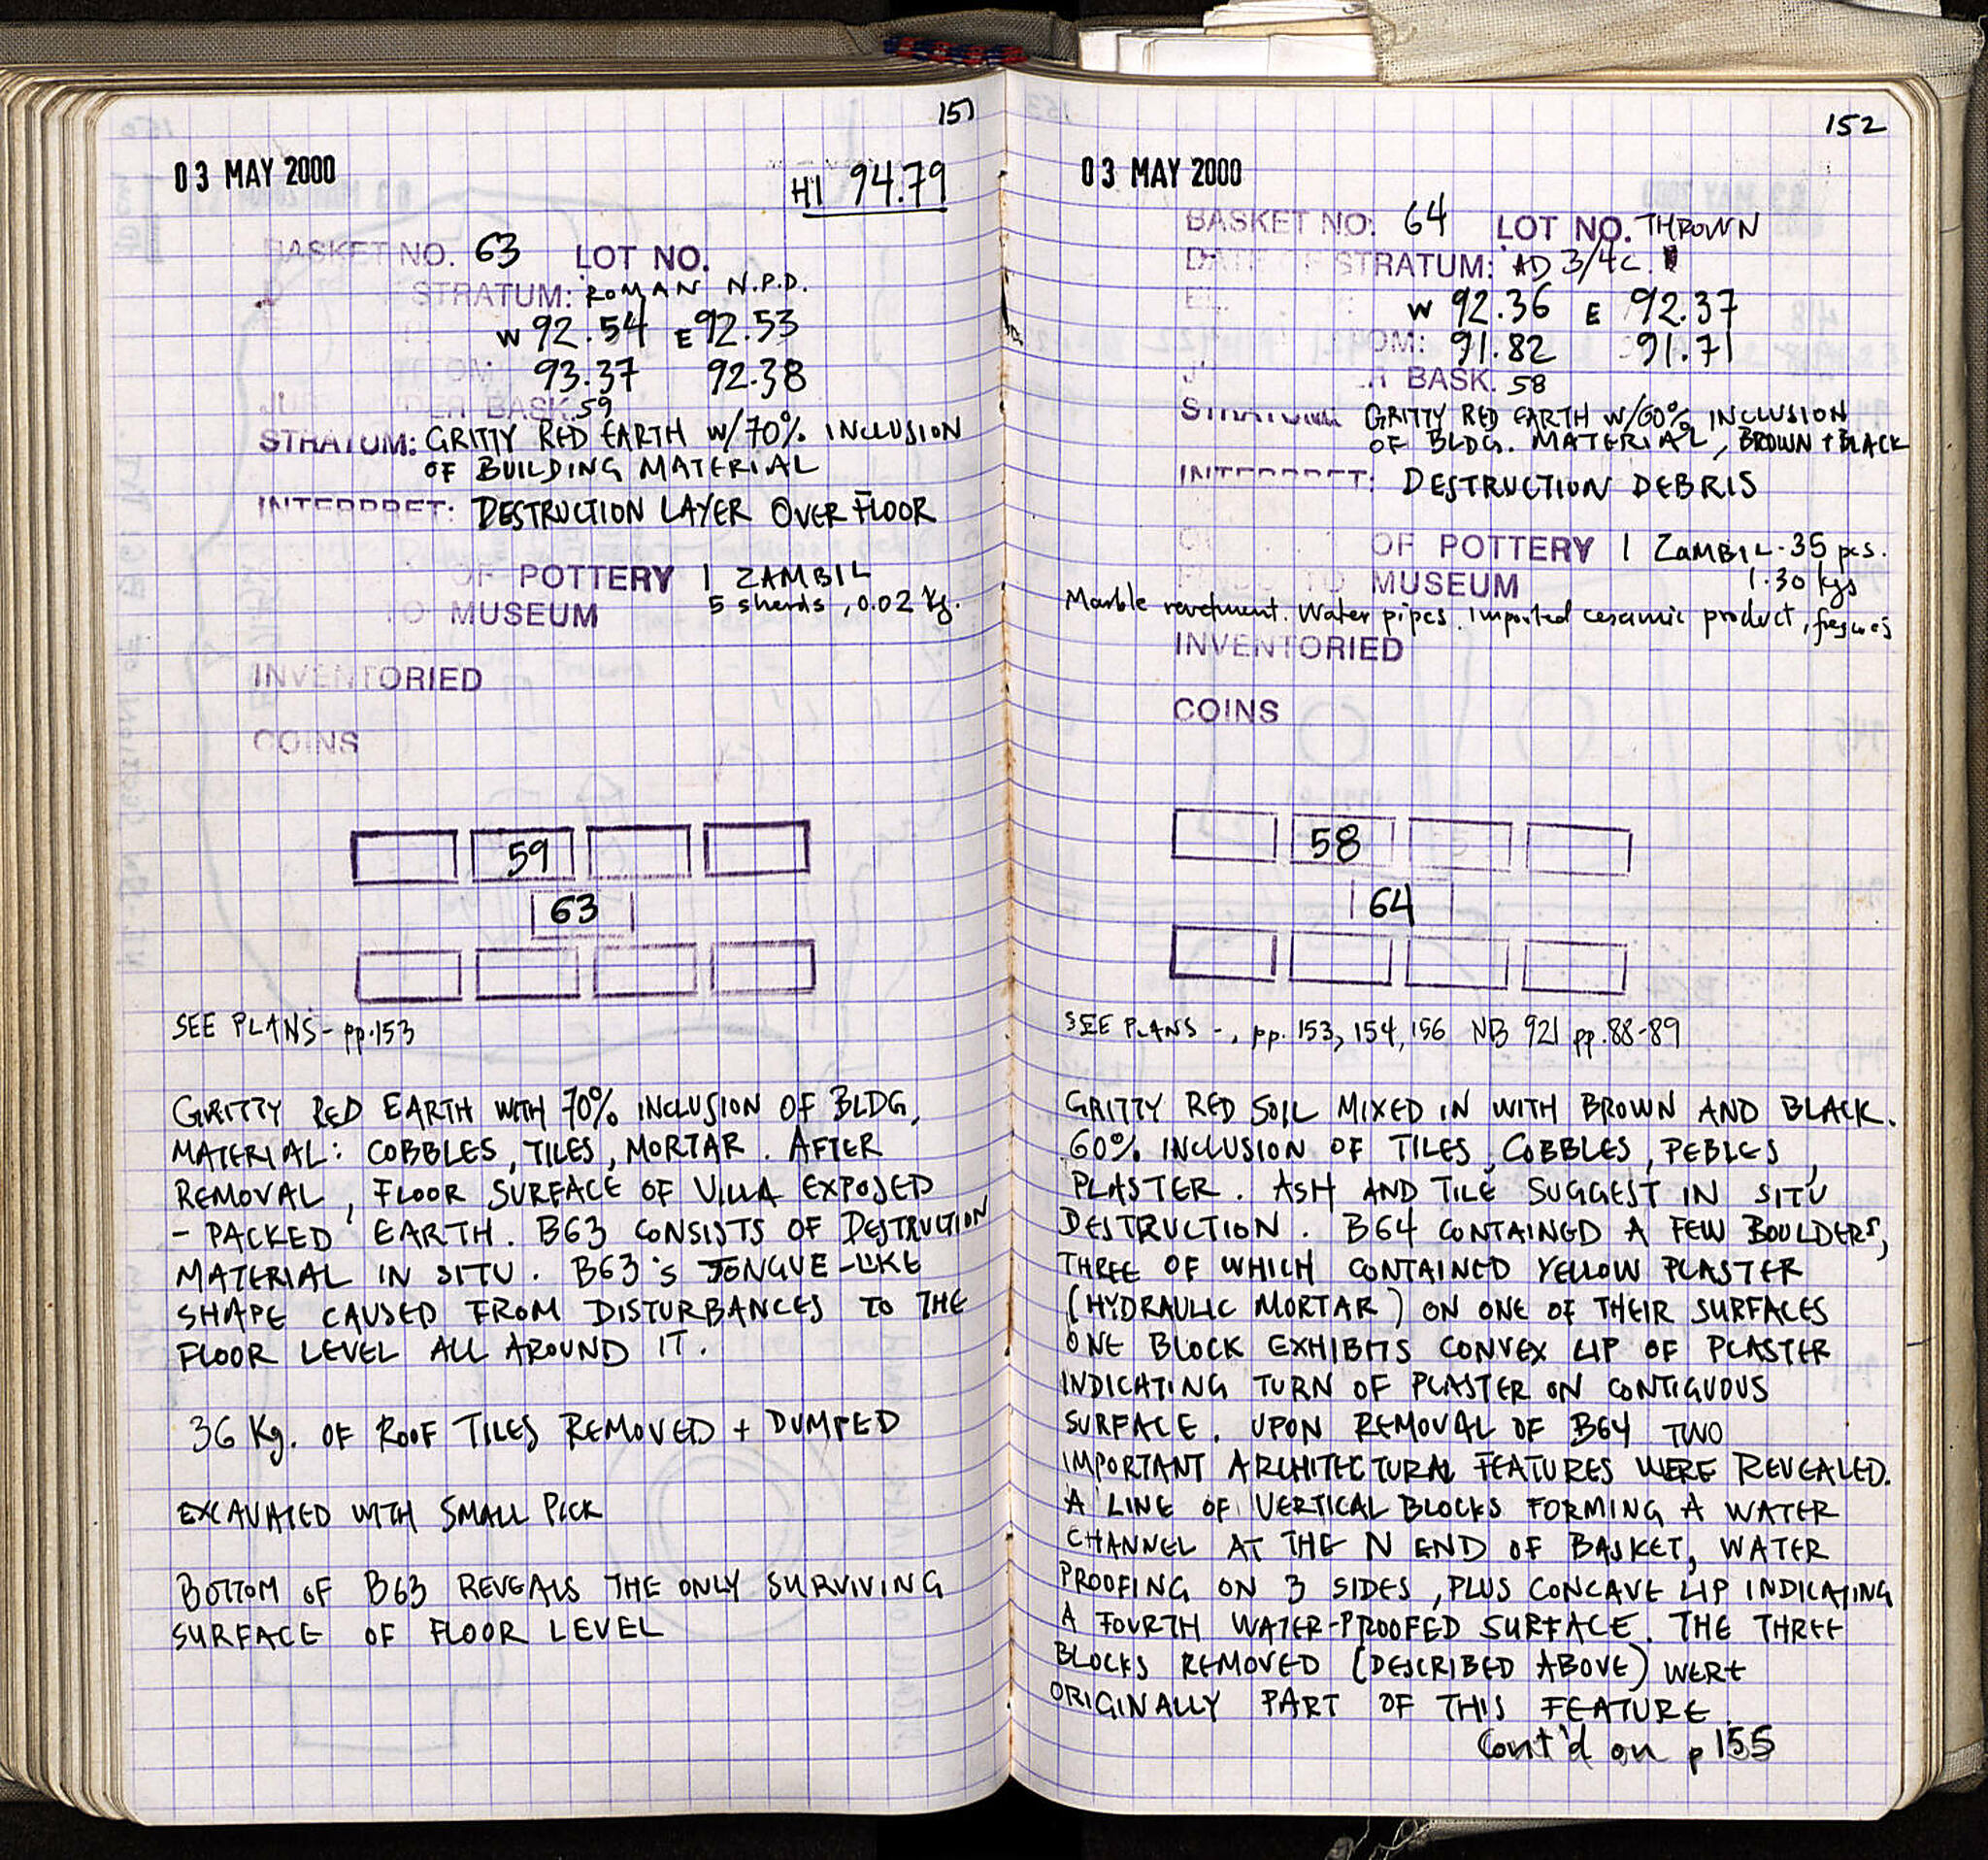 151
03 MAY 2000
HI 94.79
BASKET NO. 63 LOT NO.
STRATUM: ROMAN N.P.D.
W 92.54 E 92.53
93.37 92.38
DER BASK. 59
STRATUM: GRITTY RED EARTH W/70% INCLUSION
OF BUILDING MATERIAL
INTERPRET: DESTRUCTION LAYER OVER FLOOR
OF POTTERY 1 ZAMBIL
5 sherds, 0.02 kg.
TO MUSEUM
INVENTORIED
COINS
59
63
SEE PLANS - pp.153
GRITTY RED EARTH WITH 70% INCLUSION OF BLDG.
MATERIAL: COBBLES, TILES, MORTAR. AFTER
REMOVAL, FLOOR SURFACE OF VILLA EXPOSED
- PACKED EARTH. B63 CONSISTS OF DESTRUCTION
MATERIAL IN SITU. B63'S TONGUE-LIKE
SHAPE CAUSED FROM DISTURBANCES TO THE
FLOOR LEVEL ALL AROUND IT.
36 Kg. OF ROOF TILES REMOVED + DUMPED
EXCAVATED WITH SMALL PICK
BOTTOM OF B63 REVEALS THE ONLY SURVIVING
SURFACE OF FLOOR LEVEL
152
03 MAY 2000
BASKET NO: 64 LOT NO. THROWN
DATE OF STRATUM: AD 3/4C.
W 92.36 E 92.37
OM: 91.82 91.71
BASK. 58
STRATUM GRITTY RED EARTH W/60% INCLUSION
OF BLDG. MATERIAL, BROWN + BLACK
INTERPRET: DESTRUCTION DEBRIS
OF POTTERY 1 ZAMBIL - 35 pcs.
1.30 kgs
TO MUSEUM
Marble revetment. Water pipes. Imported ceramic product,
INVENTORIED
COINS
58
64
SEE PLANS -, pp. 153, 154, 156 NB 921 pp.88-89
GRITTY RED SOIL MIXED IN WITH BROWN AND BLACK.
60% INCLUSION OF TILES, COBBLES, PEBLES,
PLASTER. ASH AND TILE SUGGEST IN SITU
DESTRUCTION. B64 CONTAINED A FEW BOULDERS,
THREE OF WHICH CONTAINED YELLOW PLASTER
(HYDRAULIC MORTAR) ON ONE OF THEIR SURFACES
ONE BLOCK EXHIBITS CONVEX LIP OF PLASTER
INDICATING TURN OF PLASTER ON CONTIGUOUS
SURFACE. UPON REMOVAL OF B64 TWO
IMPORTANT ARCHITECTURAL FEATURES WERE REVEALED.
A LINE OF VERTICAL BLOCKS FORMING A WATER
CHANNEL AT THE N END OF BASKET, WATER
PROOFING ON 3 SIDES, PLUS CONCAVE LIP INDICATING
A FOURTH WATER-PROOFED SURFACE. THE THREE
BLOCKS REMOVED (DESCRIBED ABOVE) WERE
ORIGINALLY PART OF THIS FEATURE.
Cont'd on p 155